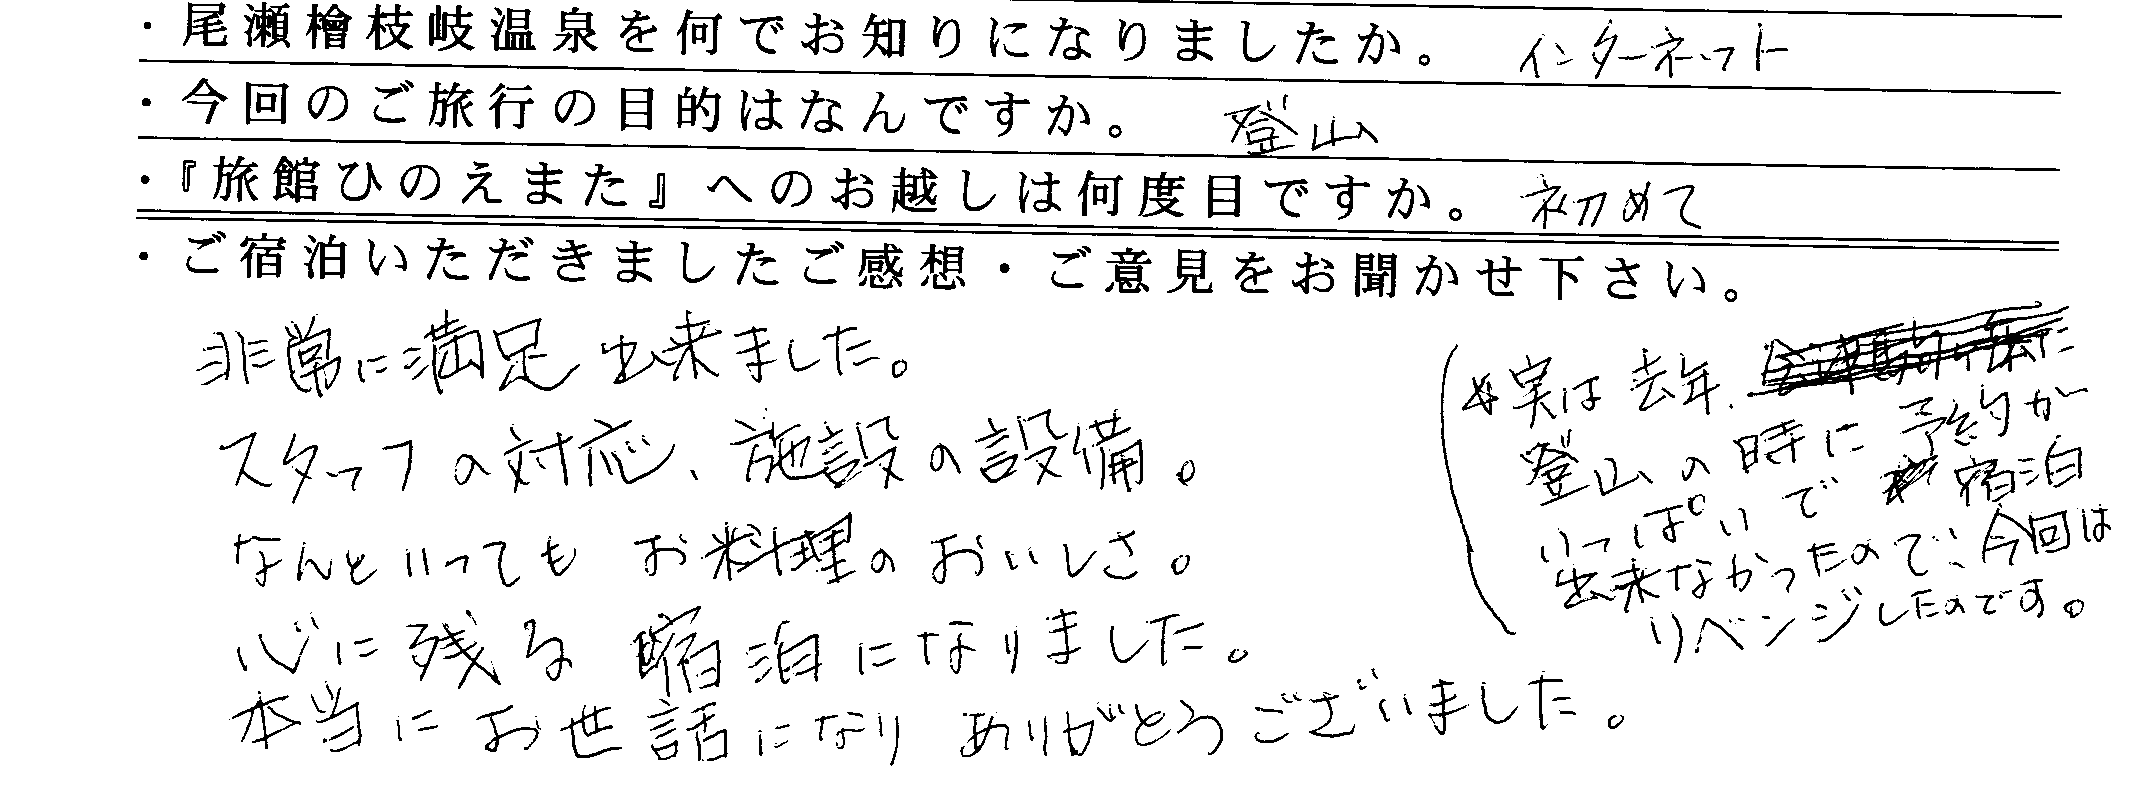 ・尾瀬檜枝岐温泉を何でお知りになりましたか。 インターネット
・今回のご旅行の目的はなんですか。 登山
・『旅館ひのえまた』へのお越しは何度目ですか。 初めて
・ご宿泊いただきましたご感想・ご意見をお聞かせ下さい。
非常に満足出来ました。
スタッフの対応、施設の設備。
なんといってもお料理のおいしさ。
心に残る宿泊になりました。
本当にお世話になりありがとうございました。
実は去年、
登山の時に予約が
いっぱいで 宿泊
出来なかったので、今回は
リベンジしたのです。